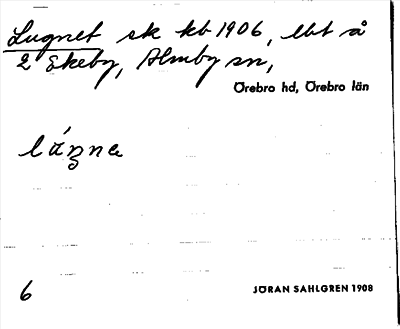 Lugnet sk kb 1906, lht å
2 Ekeby, Almby sn,
Örebro hd, Örebro län
6
JÖRAN SAHLGREN 1908